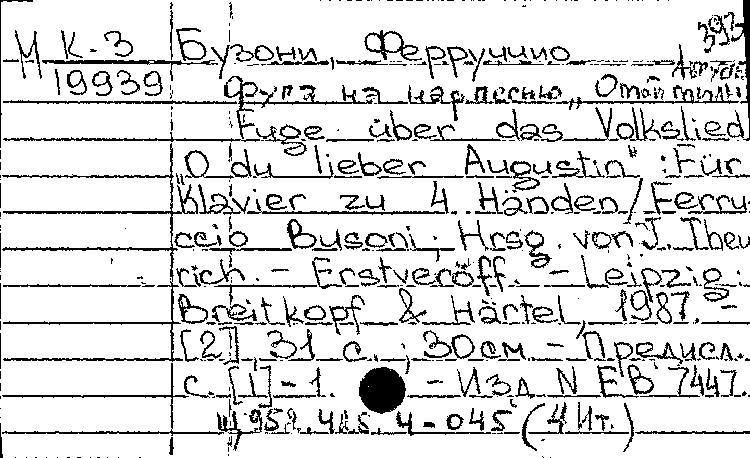 393
М К-3 Бузони, Ферруччио
19939 Фуга на нар.песню „О мой милый Августин
Fuge über das Volkslied
„O du lieber Augustin" : Für
Klavier zu 4 Händen / Ferru-
ccio Busoni ; Hrsg. von J. Theu
rich. - Erstveröff. - Leipzig :
Breitkopf & Härtel, 1987. -
[2], 31 с. ; 30см. - Предисл.
с. [1]-1. - Изд. N EB 7447.
4-045 (4 Ит.)